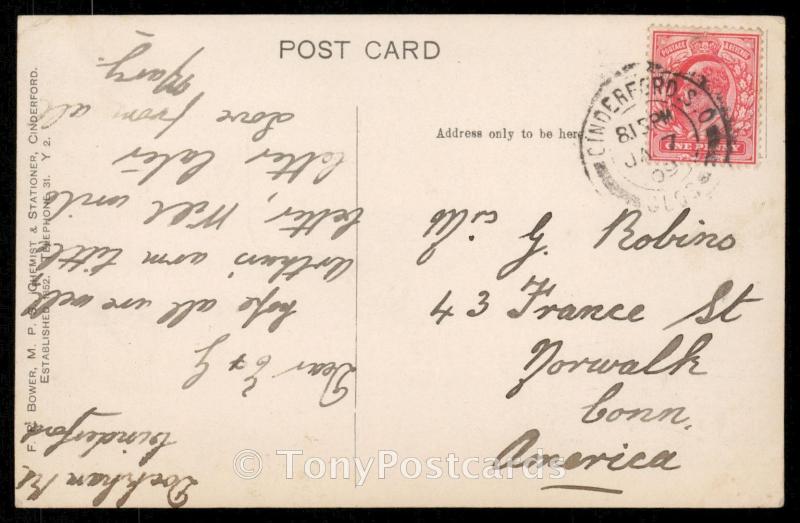 POST CARD
Address only to be here.
CINDERFORD. S.O
8.15 PM
JA 7
09
GLOS
POSTAGE & REVENUE
ONE PENNY
G. Robins
43 France St
Norwalk
Conn.
America
F. E. BOWER, M. P. S., CHEMIST & STATIONER, CINDERFORD.
ESTABLISHED 1852. TELEPHONE 31. Y 2.
Dockham Rd
Cinderford
Dear E & G
hope all are well
Arthurs arm little
better, Will write
letter later
Love from all
Mary.
© TonyPostcards